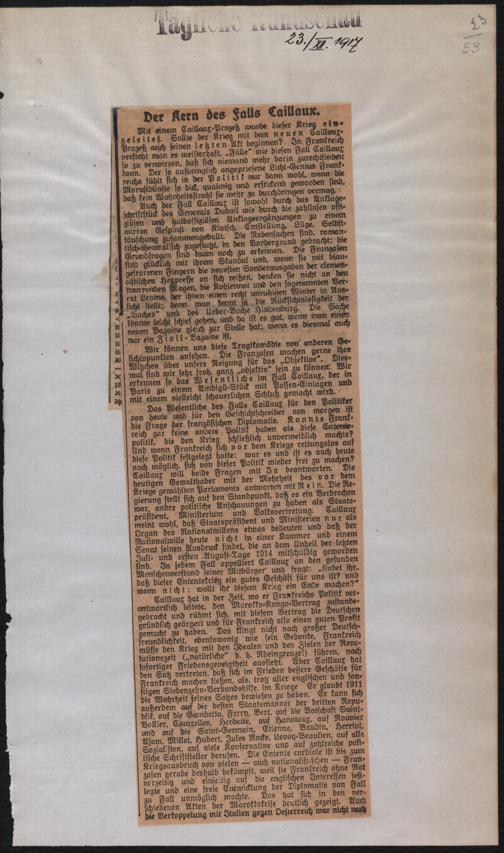 Tägliche Rundschau
23./XII. 1917
23
53
Der Kern des Falls Caillaux.
Mit einem Caillaux-Prozeß wurde dieser Krieg ein-
geleitet. Sollte der Krieg mit dem neuen Caillaux-
Prozeß auch seinen letzten Akt beginnen? In Frankreich
versteht man es meisterhaft, „Fälle“ wie diesen Fall Caillaux
so zu verwirren, daß sich niemand mehr darin zurechtfinden
kann. Der so
reichs fühlt sich in der Politik nur dann wohl, wenn die
Morastdünste so dick, qualmig und erstickend geworden sind,
daß kein Wahrheitsstrahl sie mehr zu durchdringen vermag.
Auch der Fall Caillaux ist sowohl durch das Anklage-
schriftstück des Generals Dubail wie durch die zahllosen offi-
ziösen und halboffiziösen Anklageergänzungen zu einem
wirren Gespinst von Klatsch, Entstellung, Lüge, Selbst-
täuschung zusammengeballt. Die Nebensachen sind, roman-
tisch-theatralisch zugestutzt, in den Vordergrund gebracht; die
Grundfragen sind kaum noch zu erkennen. Die Franzosen
sind glücklich mit ihrem Skandal und, wenn sie mit blau-
gefrorenen Fingern die neuesten Sonderausgaben der clemen-
cistischen Hetzpresse an sich reißen, denken sie nicht an den
knurrenden Magen, die Kohlennot und den sogenannten Ver-
rat Lenins, der ihnen einen recht unruhigen Winter in Aus-
sicht stellt; denn man kennt ja die Rücksichtslosigkeit der
„Boches“ und des Ueber-Boche Hindenburg. Die Sache
könnte leicht schief gehen, und da ist es gut, wenn man einen
neuen Bazaine gleich zur Stelle hat; wenn es diesmal auch
nur ein Zivil-Bazaine ist.
Wir können uns diese Tragikomödie von anderen Ge-
sichtspunkten ansehen. Die Franzosen machen gerne ihre
Witzchen über unsere Neigung für das „Objektive“. Dies-
mal sind wir sehr froh, ganz „objektiv“ sein zu können. Wir
erkennen so das Wesentliche im Fall Caillaux, der in
Paris zu einem Ambigü-Stück mit Possen-Einlagen und
mit einem vielleicht schauerlichen Schluß gemacht wird.
Das Wesentliche des Falls Caillaux für den Politiker
von heute und für den Geschichtschreiber von morgen ist
die Frage der französischen Diplomatie. Konnte Frank-
reich gar keine andere Politik haben als diese Entente-
politik, die den Krieg schließlich unvermeidlich machte?
Und wenn Frankreich sich vor dem Kriege rettungslos auf
diese Politik festgelegt hatte: war es und ist es auch heute
noch möglich, sich von dieser Politik wieder frei zu machen?
Caillaux will beide Fragen mit Ja beantworten. Die
heutigen Gewalthaber mit der Mehrheit des vor dem
Kriege gewählten Parlaments antworten mit Nein. Die Re-
gierung stellt sich auf den Standpunkt, daß es ein Verbrechen
war, andre politische Anschauungen zu haben als Staats-
präsident, Ministerium und Volksvertretung. Caillaux
meint wohl, daß Staatspräsident und Ministerien nur als
Organ des Nationalwillens etwas bedeuten und daß der
Nationalwille heute nicht in einer Kammer und einem
Senat seinen Ausdruck findet, die an dem Unheil der letzten
Juli- und ersten August-Tage 1914 mitschuldig geworden
sind. In jedem Fall appelliert Caillaux an den gesunden
Menschenverstand seiner Mitbürger und fragt: „findet ihr,
daß dieser Ententekrieg ein gutes Geschäft für uns ist? und
wenn nicht: wollt ihr diesem Krieg ein Ende machen?“
Caillaux hat in der Zeit, wo er Frankreichs Politik ver-
antwortlich leitete, den Marokko-Kongo-Vertrag zustande-
gebracht und rühmt sich, mit diesem Vertrag die Deutschen
gründlich geärgert und für Frankreich also einen guten Profit
gemacht zu haben. Das klingt nicht nach großer Deutsch-
freundlichkeit, ebensowenig wie sein Gedanke, Frankreich
müsse den Krieg mit den Idealen und den Zielen der Revo-
lutionszeit („natürliche“ d. h. Rheingrenze!) führen, nach
sofortiger Friedensgeneigtheit aussieht. Aber Caillaux hat
den Satz vertreten, daß sich im Frieden bessere Geschäfte für
Frankreich machen ließen, als, trotz aller englischen und son-
stigen Siebenzehn-Verbandshilfe, im Kriege. Er glaubt 1911
die Wahrheit seines Satzes bewiesen zu haben. Er kann sich
außerdem auf die besten Staatsmänner der dritten Repu-
blik, auf die Gambetta, Ferry, Bert, auf die Botschaft Saint-
Vallier, Courcelles, Herbette, auf Hanotaux, auf Rouvier
und auf die Saint-Germain, Etienne, Baudin, Herriot,
Ajam, Millet, Hubert, Jules Roche, Leroy-Beaulieu, auf alle
Sozialisten, auf viele Konservative und auf zahlreiche poli-
tische Schriftsteller berufen. Die Entente cordiale ist bis zum
Kriegsausbruch von vielen — auch nationalistischen — Fran-
zosen gerade deshalb bekämpft, weil sie Frankreich ohne Not
vorzeitig und einseitig auf die englischen Interessen fest-
legte und eine freie Entwicklung der Diplomatie von Fall
zu Fall unmöglich machte. Das hat sich in den ver-
schiedenen Akten der Marokkokrise deutlich gezeigt. Auch
die Verkoppelung mit Italien gegen Oesterreich war nicht nach